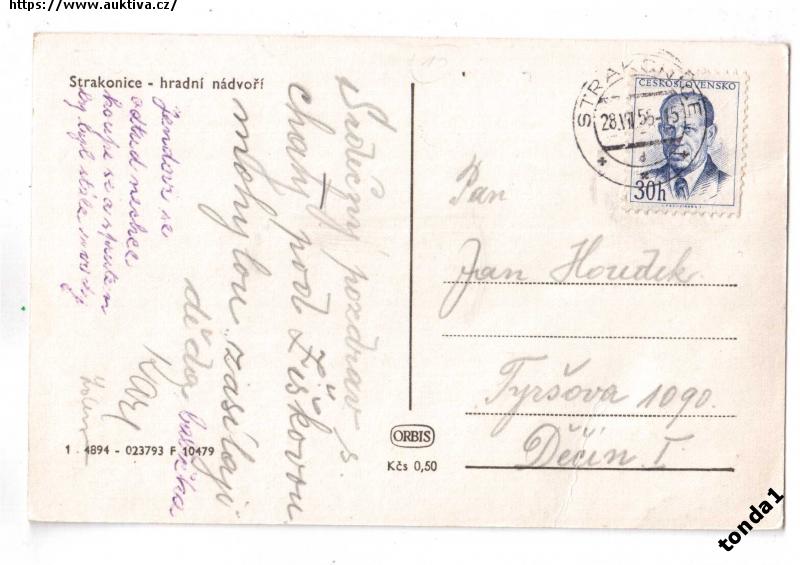 https://www.auktiva.cz/
Strakonice - hradní nádvoří
Srdečný pozdrav s
chaty pod Žižkovou
mohylou zasílají
děda babička
Karl
Jendovi se
odtud nechce
koupe se a
by byl stále
STRAKONICE
28.VII.56-15
ČESKOSLOVENSKO
30h
Pan
Jan Houdek
Tyršova 1090.
Děčín I
ORBIS
Kčs 0,50
1 . 4894 - 023793 F 10479
tonda1